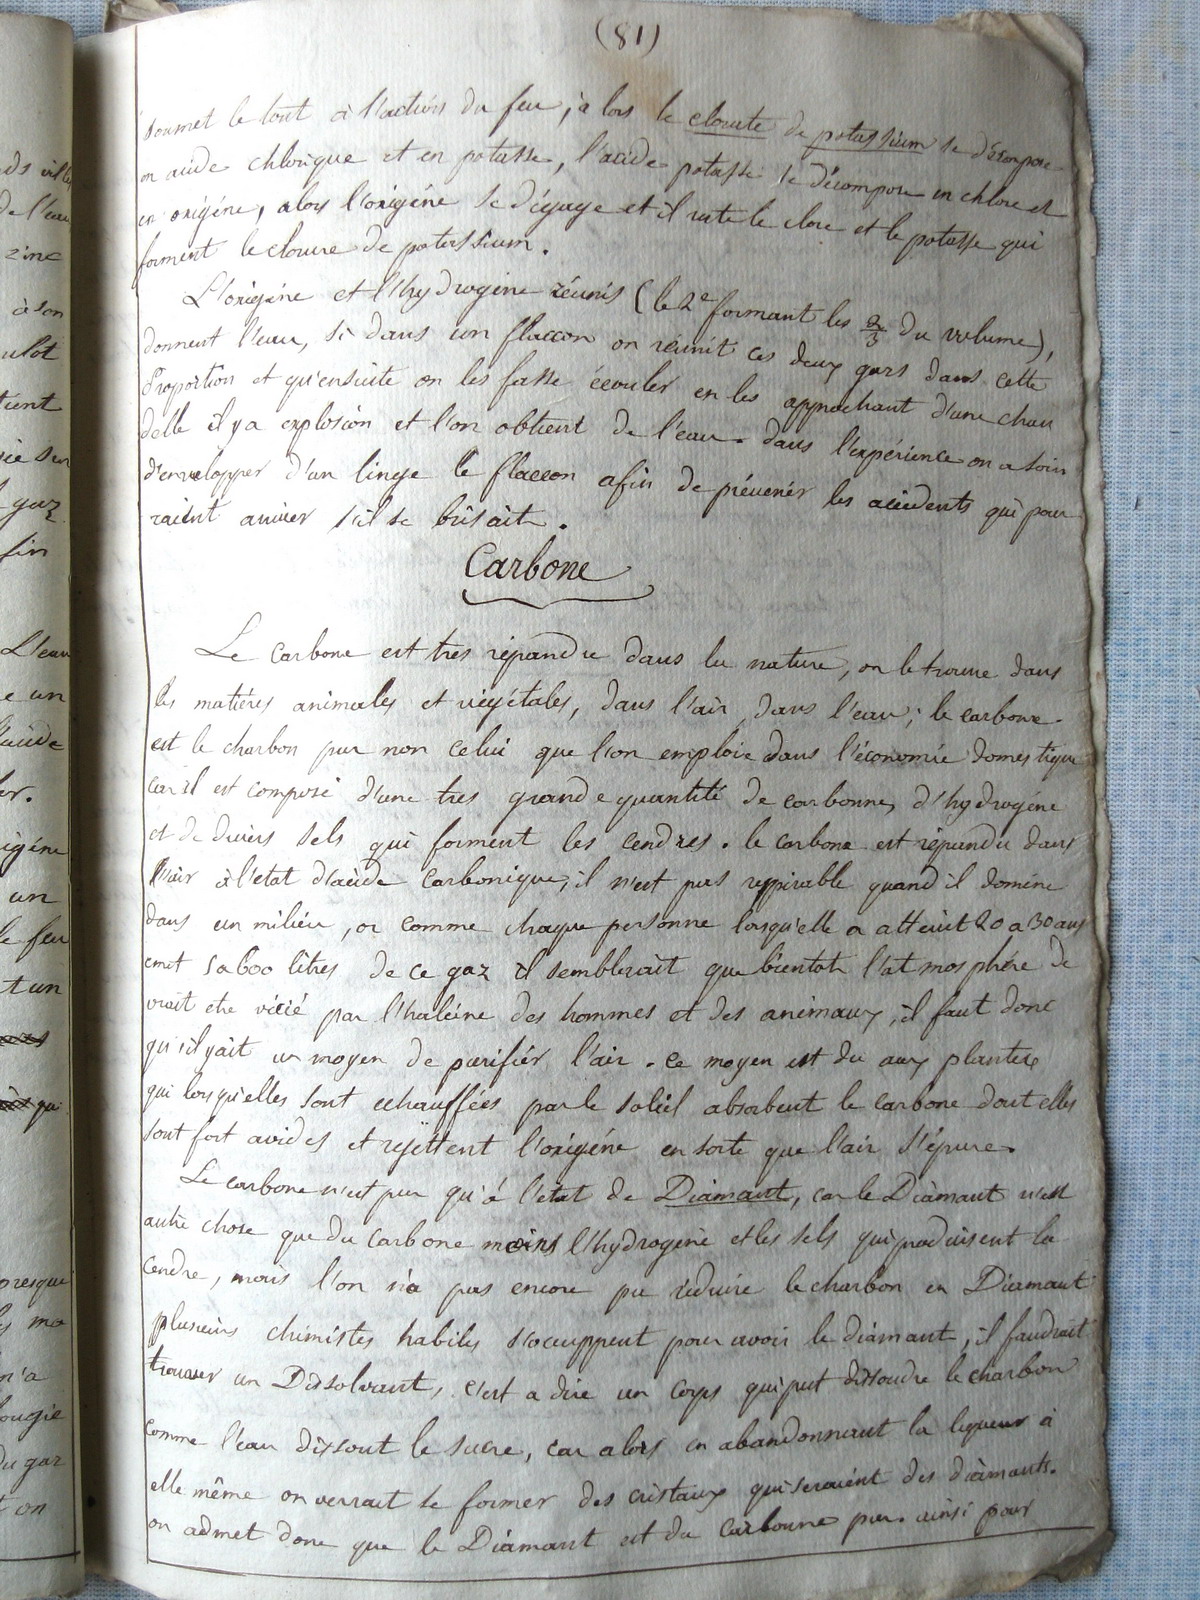 (81)
soumet le tout à l'action du feu, a lors le clorate de potassium se décompose
en acide chlorique et en potasse, l'acide potasse se décompose en chlore et
en origéne, alors l'origéne se dégage et il reste le clore et le potasse qui
forment le clorure de potassium.
L'origéne et l'hydrogéne réunis (le 2e formant les 2/3 du volume),
donnent l'eau, si dans un flaccon on réunit ces deux gars dans cette
proportion et qu'ensuite on les fasse écouler en les approchant d'une chan
delle il y a explosion et l'on obtient de l'eau. dans l'expérience on a soin
d'envelopper d'un linge le flaccon afin de prévenir les accidents qui pour
raient arriver s'il se brisait.
Carbone
Le carbone est tres répandu dans la nature, on le trouve dans
les matières animales et végétales, dans l'air dans l'eau; le carbone
est le charbon pur non celui que l'on emploie dans l'économie domestique
car il est composé d'une tres grande quantité de carbonne, d'hydrogéne
et de divers sels qui forment les cendres. le carbone est répandu dans
l'air à l'etat d'acide carbonique, il n'est pas respirable quand il domine
dans un milieu, or comme chaque personne lorsqu'elle a atteint 20 a 30 ans
emet 5 a 600 litres de ce gaz il semblerait que bientot l'atmosphére de
vrait etre vicié par l'haleine des hommes et des animaux, il faut donc
qu'il y ait un moyen de purifier l'air. ce moyen est du aux plantes
qui lorsqu'elles sont echauffées par le soleil absorbent le carbone dont elles
sont fort avides et rejettent l'origéne en sorte que l'air s'épure.
Le carbone n'est pur qu'à l'etat de Diamant, car le Diamant n'est
autre chose que du carbone moins l'hydrogéne et les sels qui produisent la
cendre, mais l'on n'a pas encore pu réduire le charbon en Diamant
plusieurs chimistes habiles s'occuppent pour avoir le diamant, il faudrait
trouver un Dissolvant, c'est a dire un corps qui put dissoudre le charbon
comme l'eau dissout le sucre, car alors en abandonnant la liqueur à
elle même on verrait se former des cristaux qui seraient des diamants.
on admet donc que le Diamant est du carbonne pur. ainsi pour